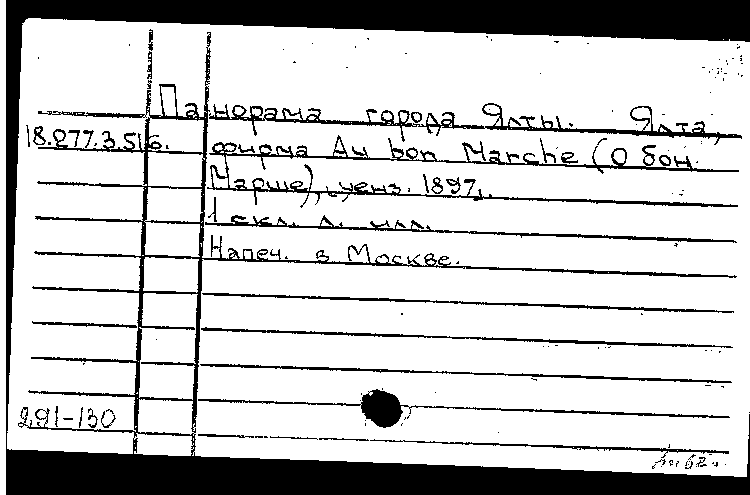 Панорама города Ялты. Ялта,
18.277.3.516. фирма Au bon Marche (О бон
Марше), ценз. 1897.
1 скл. л. илл.
Напеч. в Москве.
291-130